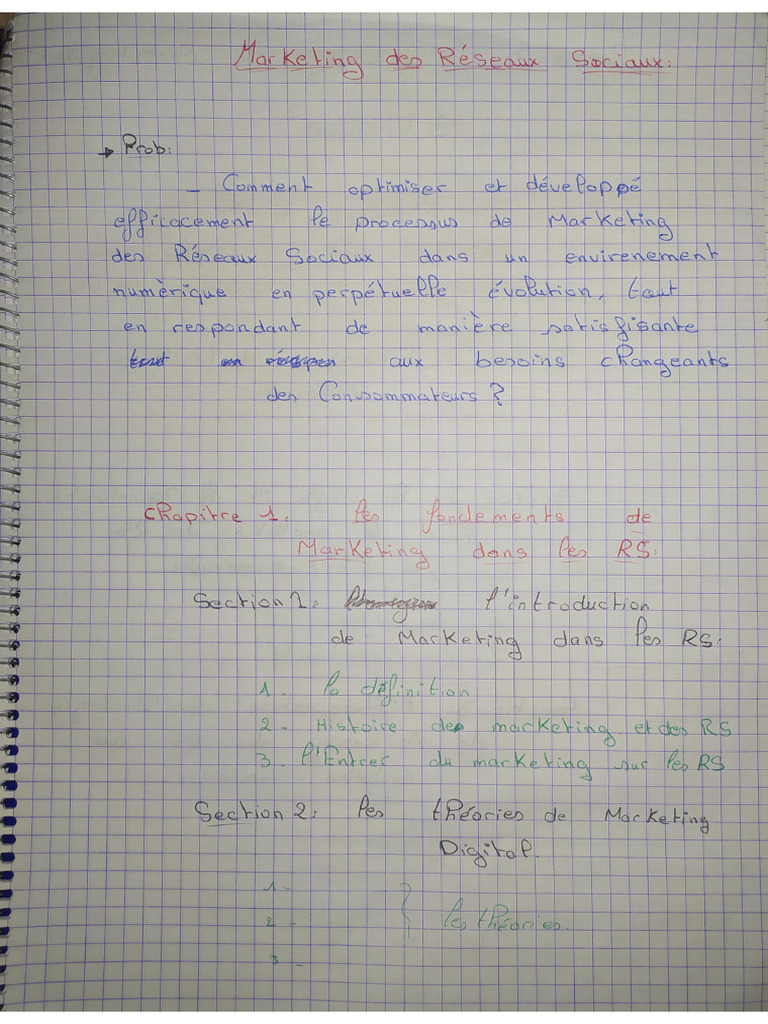 Marketing des Réseaux Sociaux:
→ Prob:
- Comment optimiser et développé
efficacement le processus de Marketing
des Réseaux Sociaux dans un envirenement
numèrique en perpétuelle évolution, tout
en respondant de manière satisfisante
aux besoins changeants
des Consommateurs ?
Chapitre 1: les fondements de
Marketing dans les RS.
Section 1: l'introduction
de Marketing dans les RS.
1- la définition
2- Histoire des marketing et des RS
3- l'Entrer du marketing sur les RS
Section 2: les théories de Marketing
Digital.
1-
2- } les théories.
3-